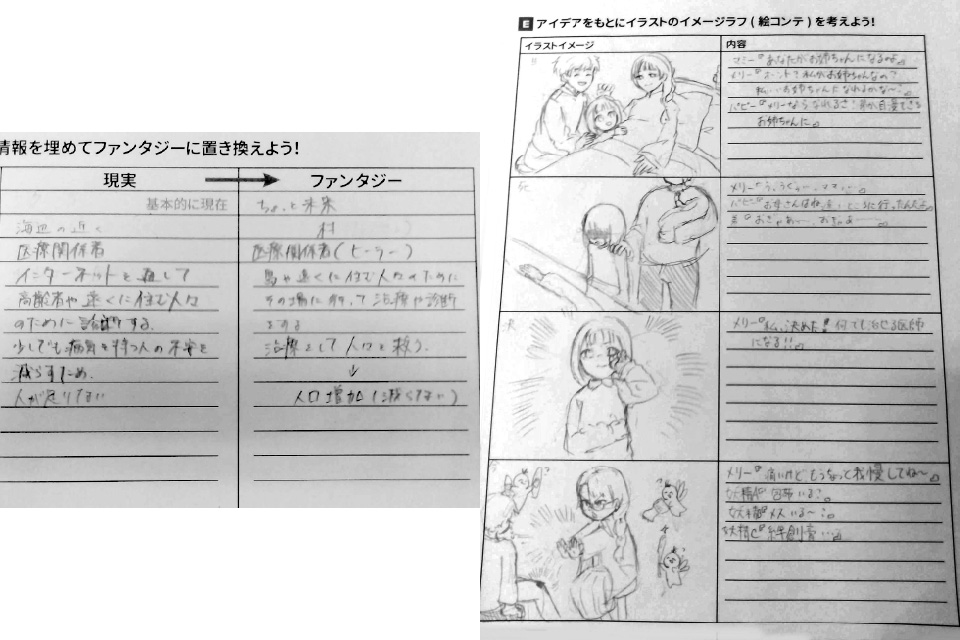 情報を埋めてファンタジーに置き換えよう!
現実
ファンタジー
基本的に現在
ちょっと未来
海辺の近く
村
医療関係者
医療関係者(ヒーラー)
インターネットを通して
高齢者や遠くに住む人々
のために診断する。
少しでも病気を持つ人の不安を
減らすため。
人が足りない
島や遠くに住む人々のために
その場に行って治療や診断
をする
治療をして人口を救う。
↓
人口増加(減らない)
E アイデアをもとにイラストのイメージラフ(絵コンテ)を考えよう!
イラストイメージ
内容
マミー『あなたがお姉ちゃんになるのよ』
メリー『ホント?私がお姉ちゃんなの?
私、お姉ちゃんになれるかな〜』
パピー『メリーならなれるさ!
お姉ちゃんに』
死
メリー『ううっぐすっ ママ…』
パピー『お母さんはね、遠いところに行ったんだ』
『おぎゃあー おぎゃあー』
決
メリー『私、決めた!何でも治せる医師
になる!!』
メリー『痛いけどもうちょっと我慢してね〜』
妖精A『包帯いる?』
妖精B『メスいる〜?』
妖精C『絆創膏…』